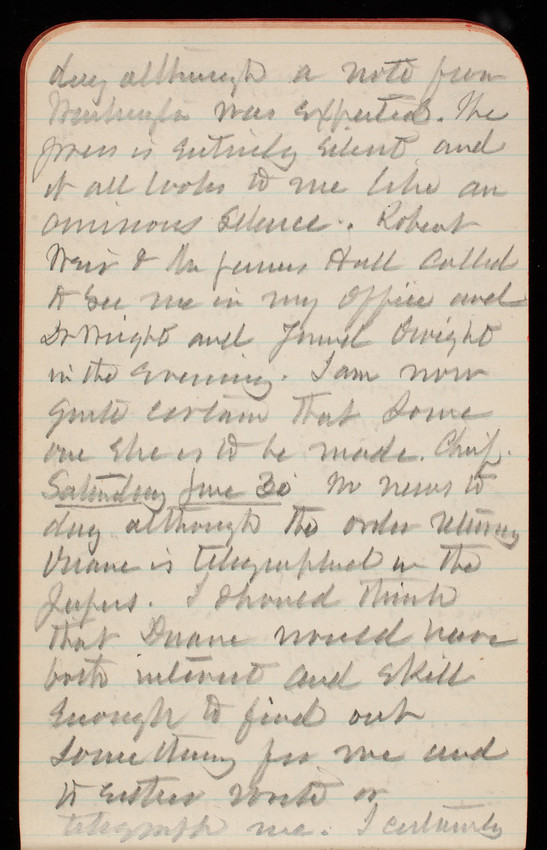 day although a note from
Washington was expected. The
press is entirely silent and
it all looks to me like an
ominous silence. Robert
Weir & Hall called
to see me in my office and
Dr Wright and Dwight
in the evening. I am now
quite certain that some
one else is to be made Chief.
Saturday June 30 No news to
day although the order retiring
Duane is telegraphed in the
papers. I should think
that Duane would have
both interest and skill
enough to find out
something for me and
to either write or
telegraph me. I certainly